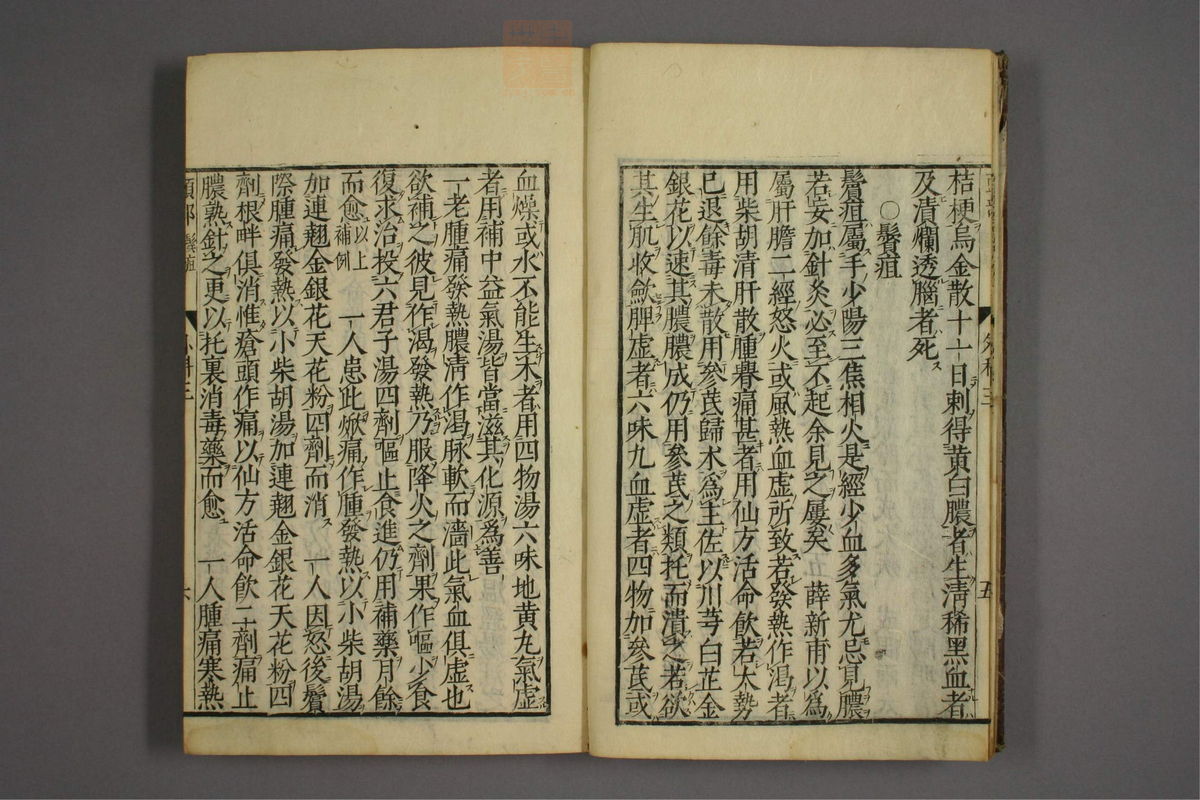 桔梗烏金散十一日刺得黃白膿者生清稀黑血者
及潰爛透腦者死
〇鬢疽
鬢疽屬手少陽三焦相火是經少血多氣尤忌見膿
若妄加針灸必至不起余見之屢矣 薛新甫以爲
屬肝膽二經怒火或風熱血虛所致若發熱作渴者
用柴胡清肝散腫痛甚者用仙方活命飲若大勢
已退餘毒未散用參芪歸朮爲主佐以川芎白芷金
銀花以速其膿膿成仍用參芪之類托而潰之若欲
其生肌收斂脾虛者六味九血虛者四物加參芪或
五
血燥或水不能生木者用四物湯六味地黃九氣虛
者用補中益氣湯皆當滋其化源爲善
一老腫痛發熱膿淸作渴脉軟而濇此氣血俱虛也
欲補之彼見作渴發熱乃服降火之劑果作嘔少食
復求治投六君子湯四劑嘔止食進仍用補藥月餘
而愈以上補例 一人患此焮痛作腫發熱以小柴胡湯
加連翹金銀花天花粉四劑而消 一人因怒後鬢
際腫痛發熱以小柴胡湯加連翹金銀花天花粉四
劑根畔俱消惟瘡頭作痛以仙方活命飲二劑痛止
膿熟針之更以托裏消毒藥而愈 一人腫痛寒熱
鬢疽
六